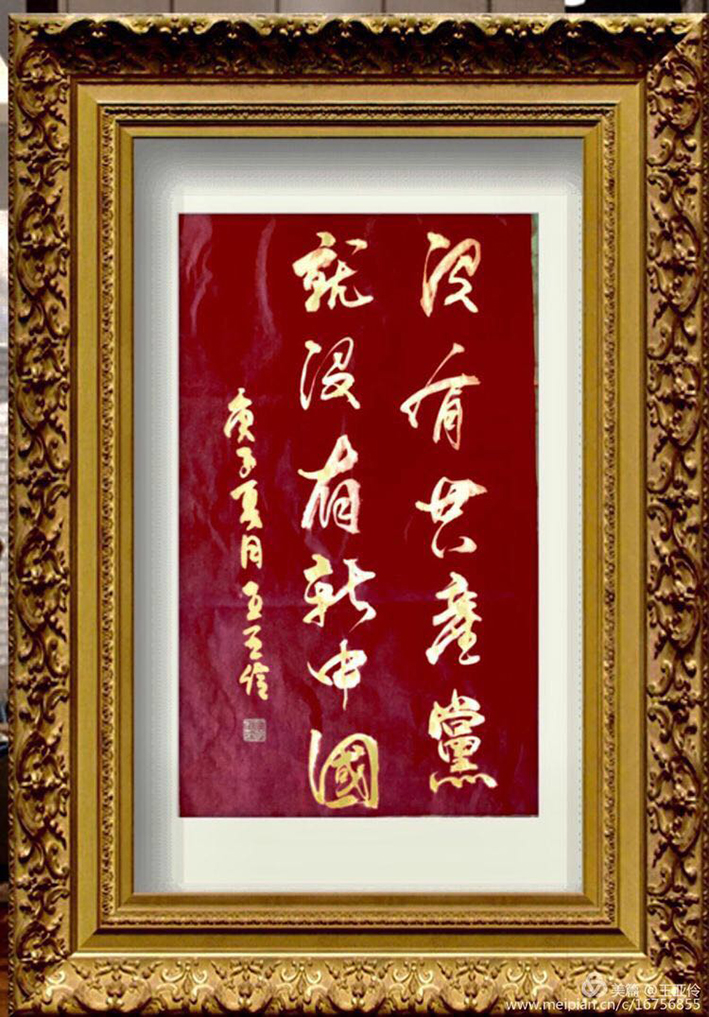 没有共產黨
就没有新中國
庚子夏月王亚伶
美篇@王亚伶
www.meipian.cn/c/16756855